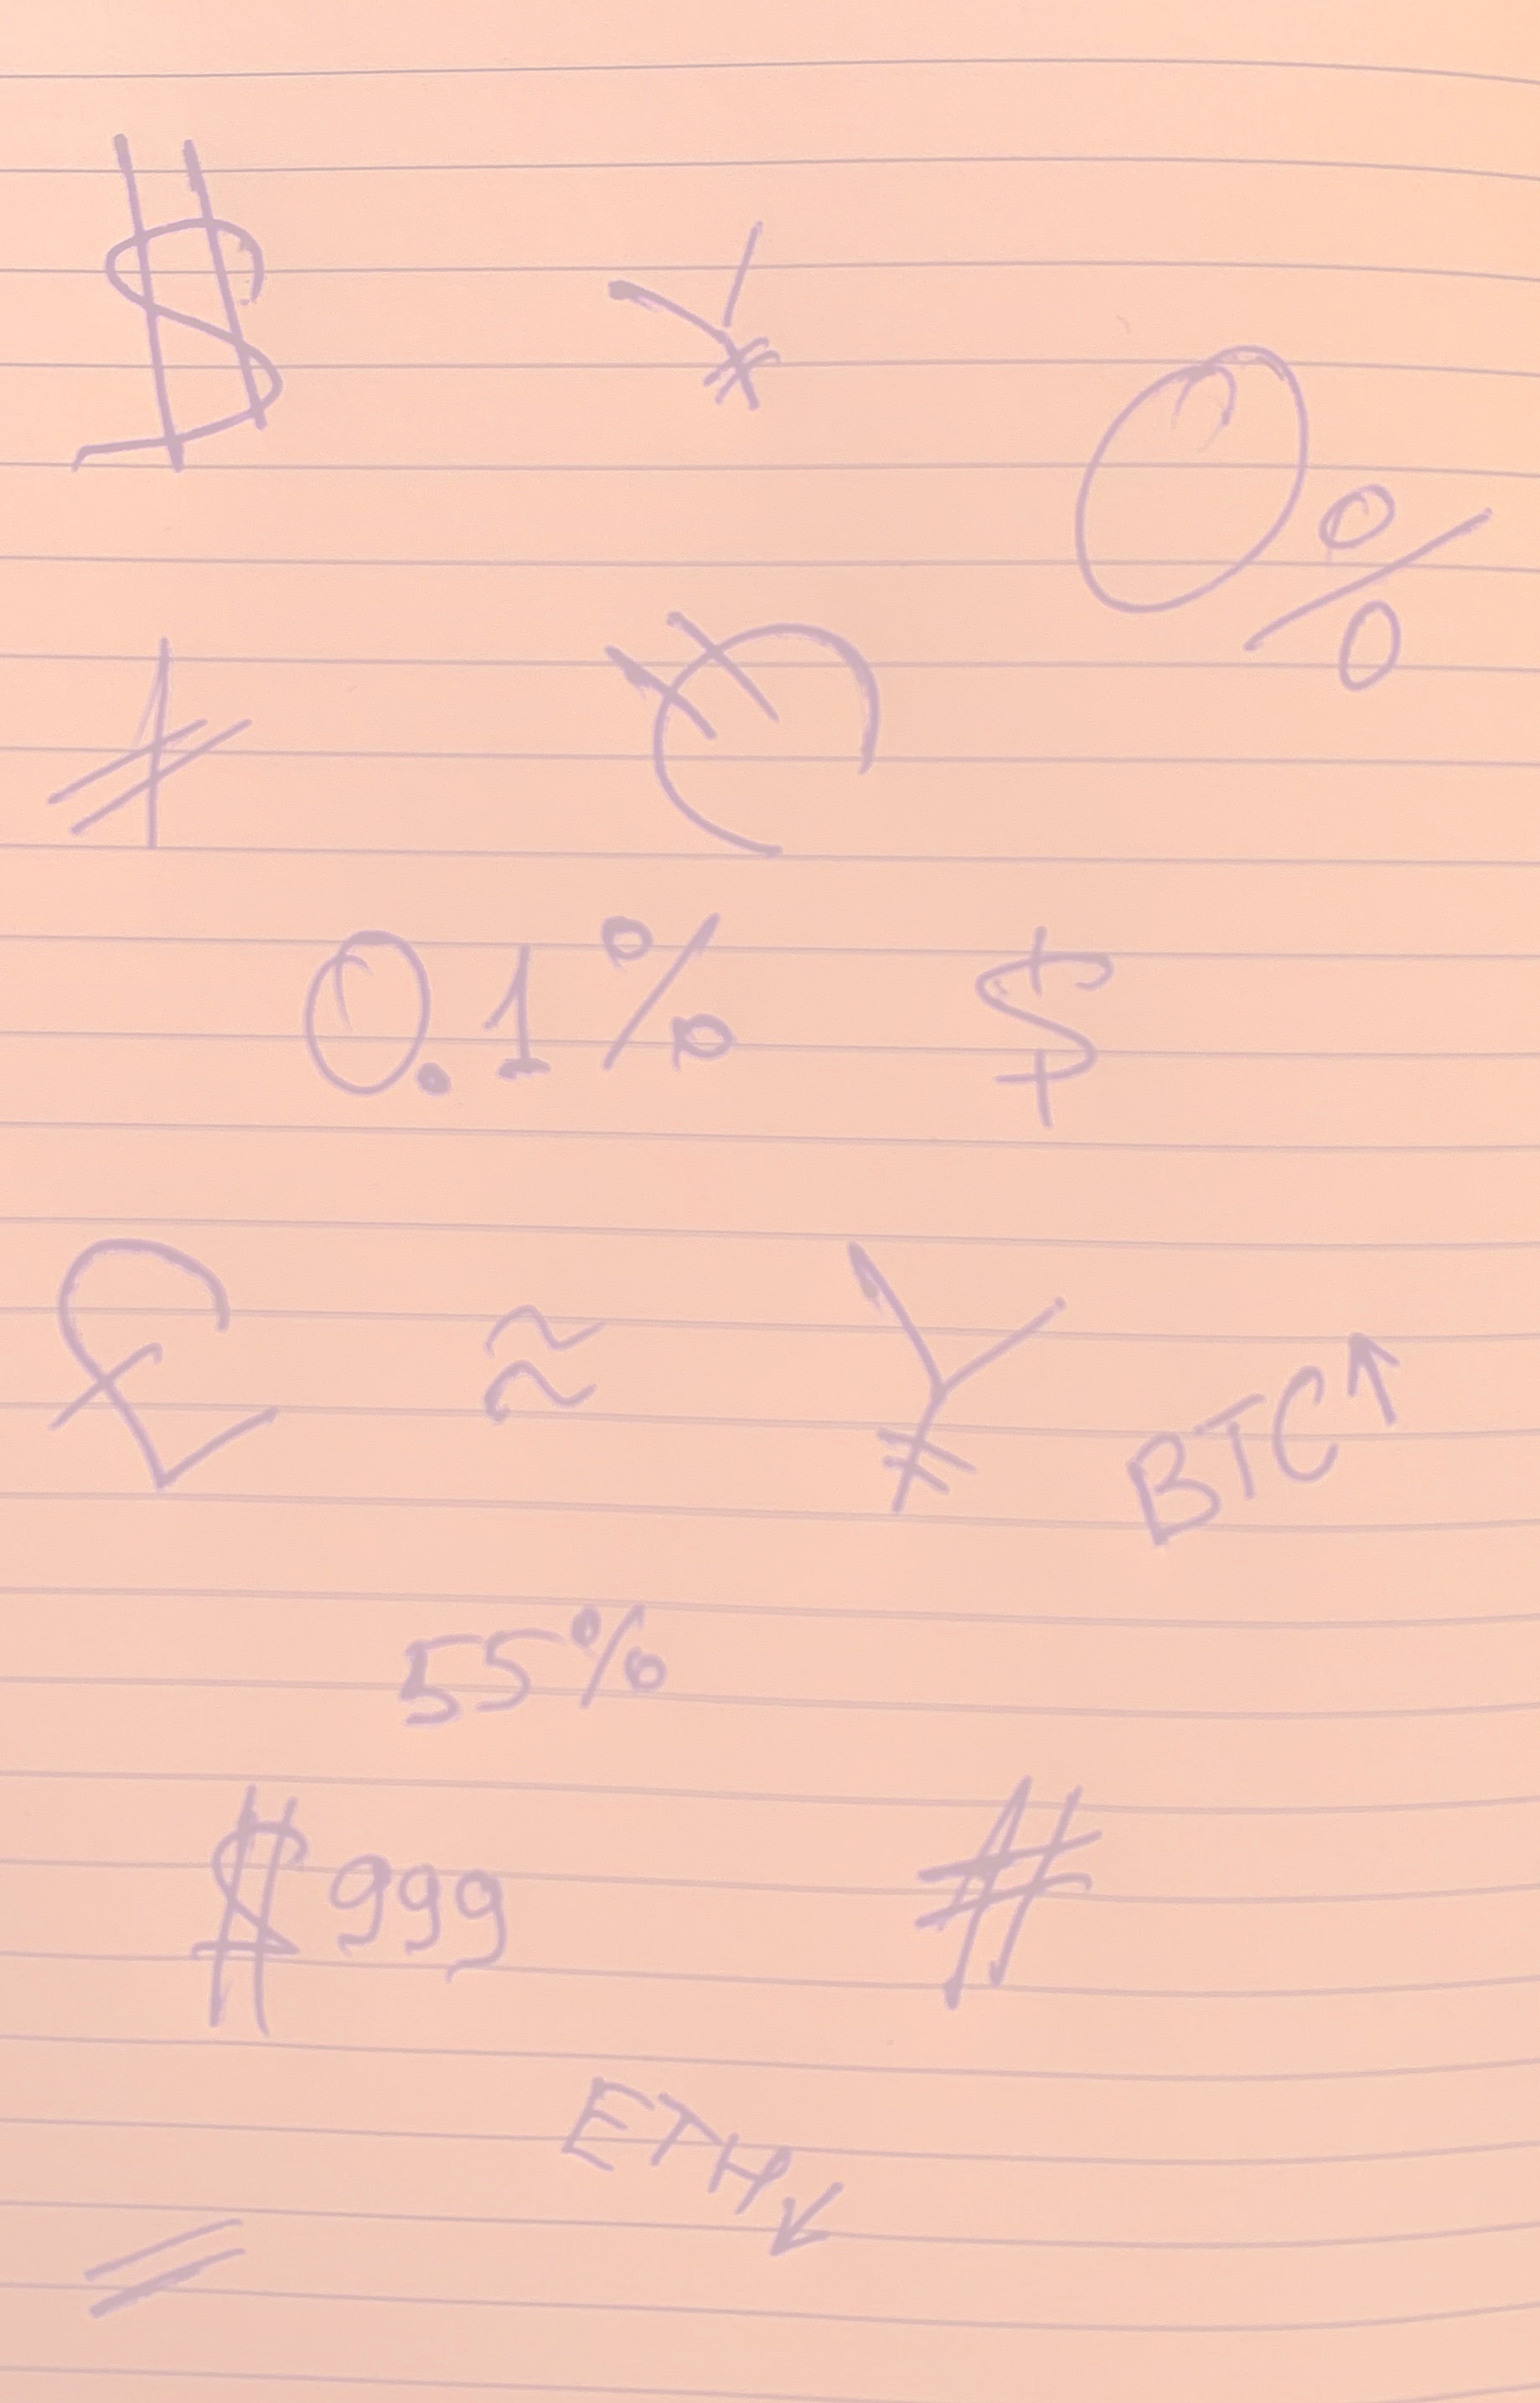 $ ¥
0%
≠ €
0.1% $
£ ≈ ¥ BTC↑
55%
$999 #
ETH↓
=